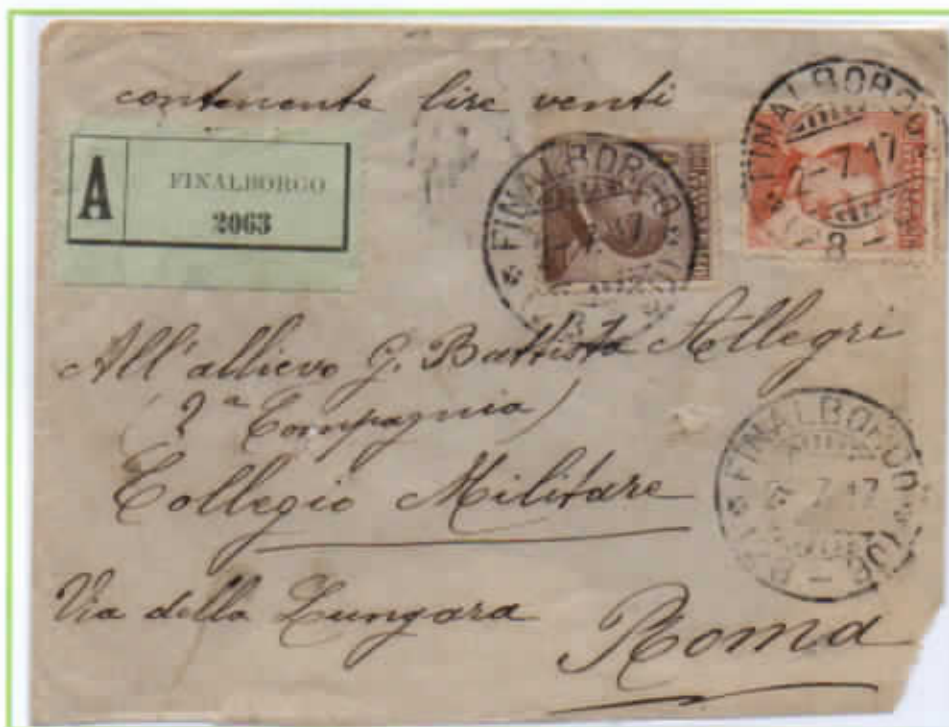 contenente lire venti
A
FINALBORGO
2063
FINALBORGO
7.17
FINALBORGO
7.17
- 8 -
All'allievo G. Battista Allegri
(2ª Compagnia)
Collegio Militare
FINALBORGO
7.17
Via della Lungara
Roma